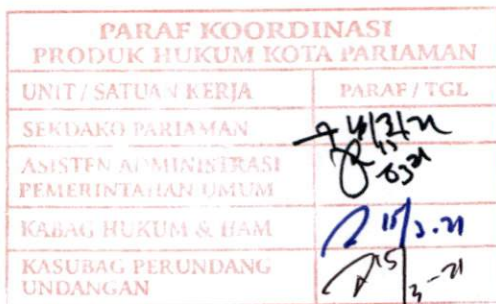 PARAF KOORDINASI
PRODUK HUKUM KOTA PARIAMAN
UNIT / SATUAN KERJA PARAF / TGL
SEKDAKO PARIAMAN
ASISTEN ADMINISTRASI
PEMERINTAHAN UMUM
KABAG HUKUM & HAM 15/3-21
KASUBAG PERUNDANG
UNDANGAN 15/3-21